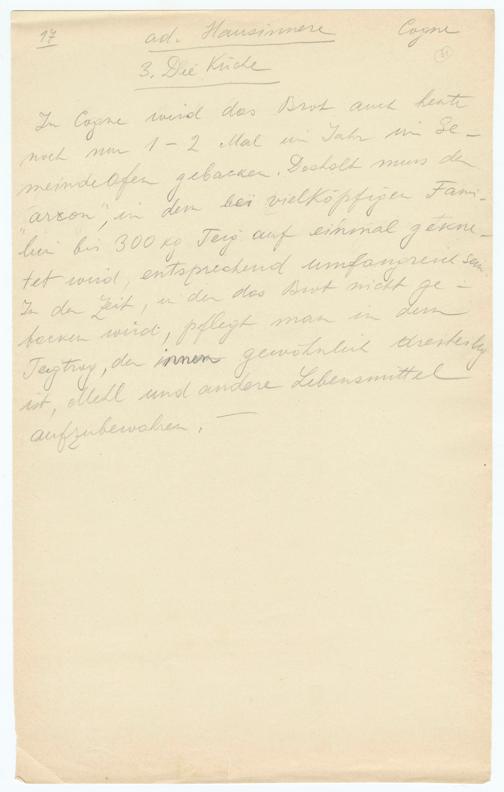 17 ad. Hausinnere Cogne
3. Die Küche
In Cogne wird das Brot auch heute
noch nur 1 – 2 Mal im Jahr im Ge-
meindeofen gebacken. Deshalb muss der
"arcon", in dem bei vielköpfigen Fami-
lien bis 300 kg Teig auf einmal gekne-
tet wird, entsprechend umfangreich sein.
In der Zeit, in der das Brot nicht ge-
backen wird, pflegt man in dem
Teigtrog, der innen gewöhnlich dreiteilig
ist, Mehl und andere Lebensmittel
aufzubewahren. —